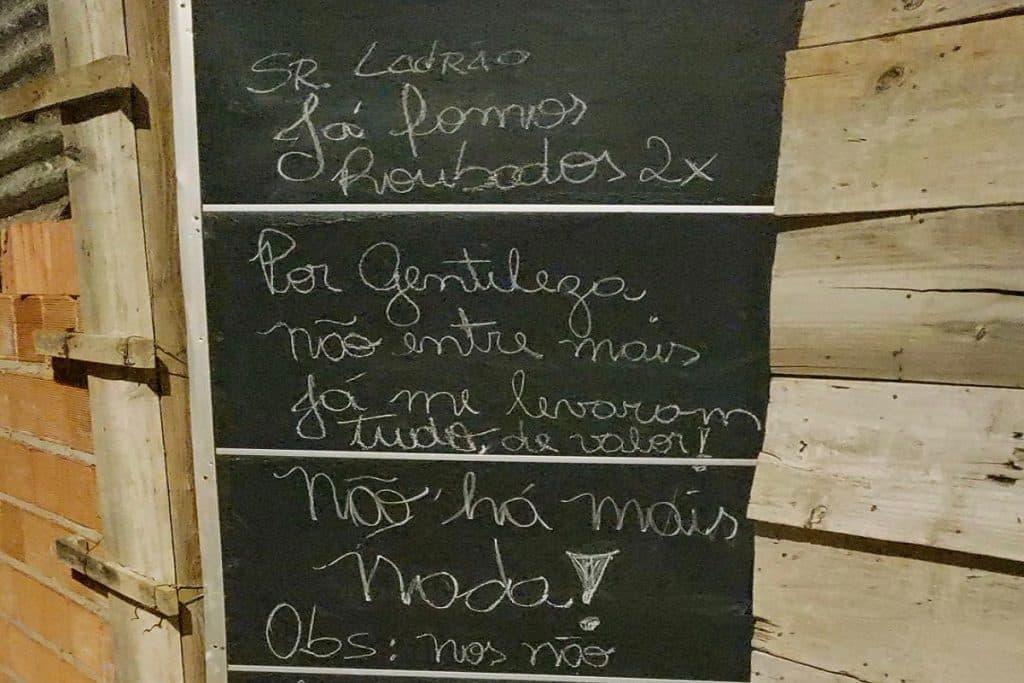 SR. LADRÃO
Já fomos
Roubados 2x
Por Gentileza
não entre mais
Já me levaram
tudo, de valor!
Não há máis
Nada!
Obs: nos não